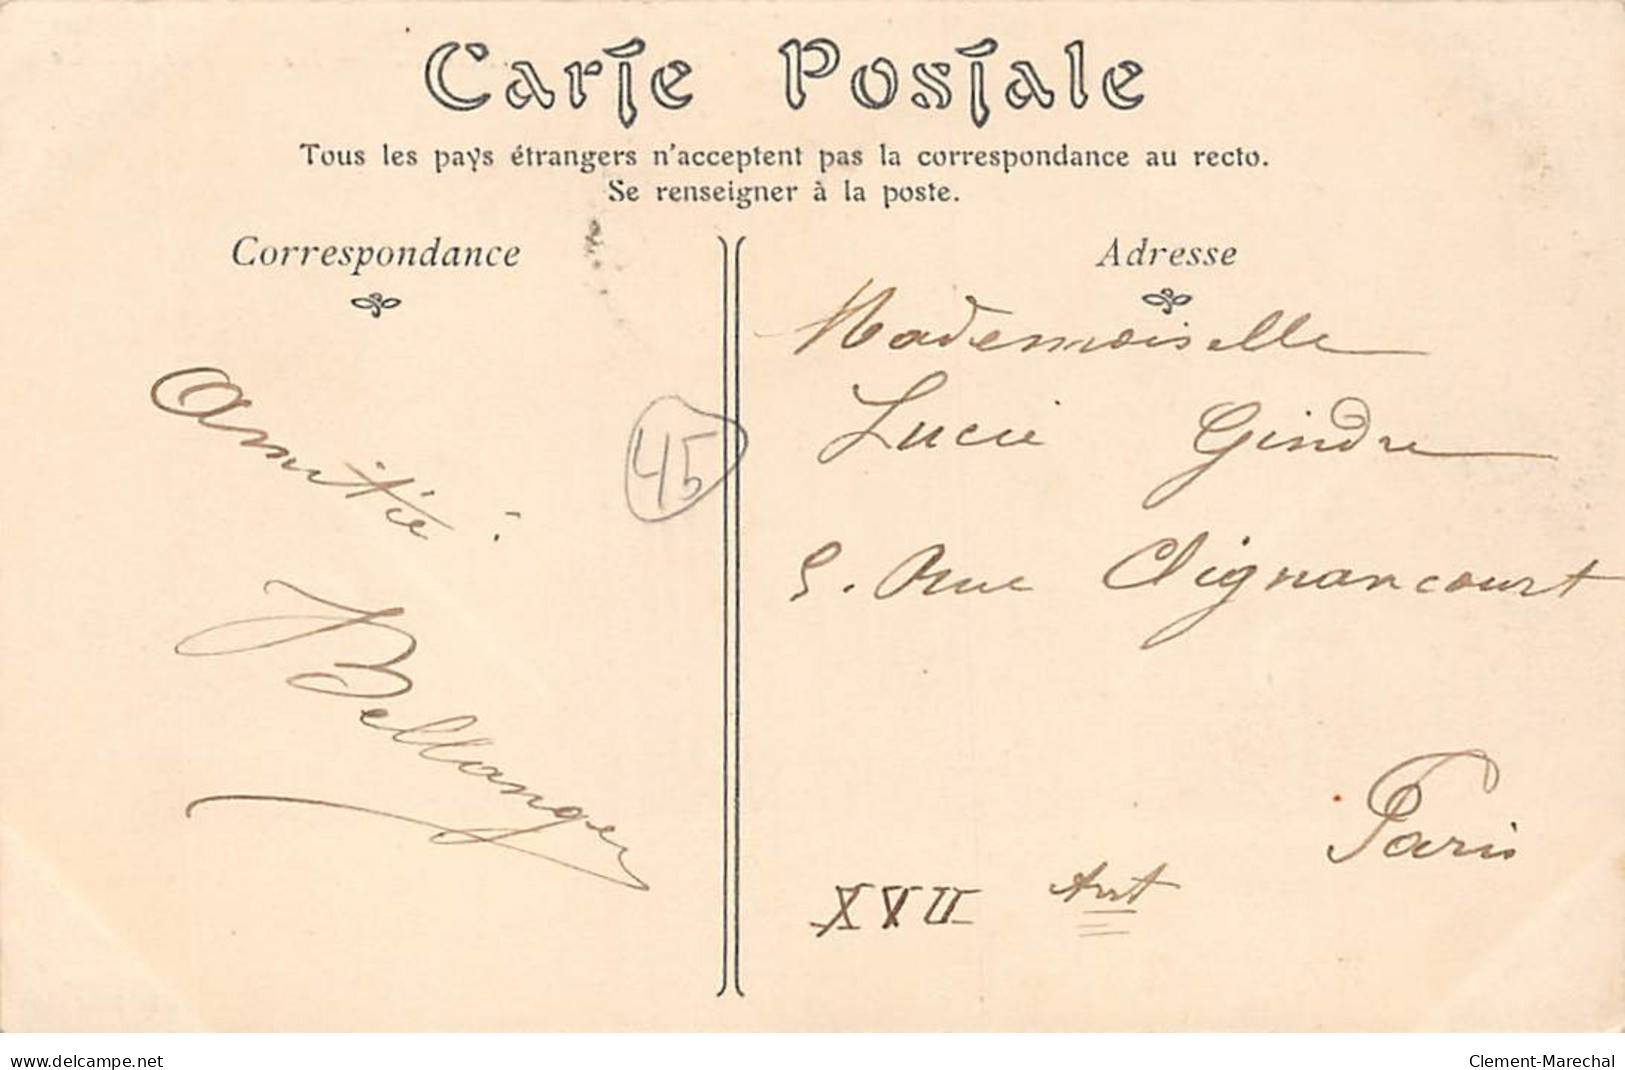 Carte Postale
Tous les pays étrangers n'acceptent pas la correspondance au recto.
Se renseigner à la poste.
Correspondance
Amitié
Bellanger
45
Adresse
Mademoiselle
Lucie Gindre
5. Rue Clignancourt
Paris
XVII Arrt
www.delcampe.net
Clement-Marechal